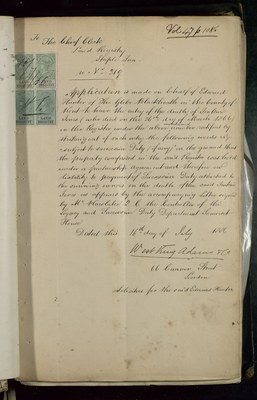 Vol 47 p 1186
To The Chief Clerk
Land Registry
Staple Inn
re No. 209
Application is made on behalf of Edward
Hunter of The Glebe Blackheath in The County of
Kent to have the entry of the death of
Jones (who died on the 26th day of March 1886)
in the Register under the above number
striking out of such entry the following words viz
"subject to Succession Duty (if any)" on the ground that
the property comprised in the said Number was held
under a partnership agreement and therefore no
liability to payment of Succession Duty attached to
the surviving owners on the death of the said
Jones as appears by the accompanying Letter signed
by Mr. the Controller of the
Legacy and Succession Duty Department Somerset
House
Dated this 16th day of July 1886
West King Adams & Co
66 Cannon Street
London
Solicitors for the said Edward Hunter